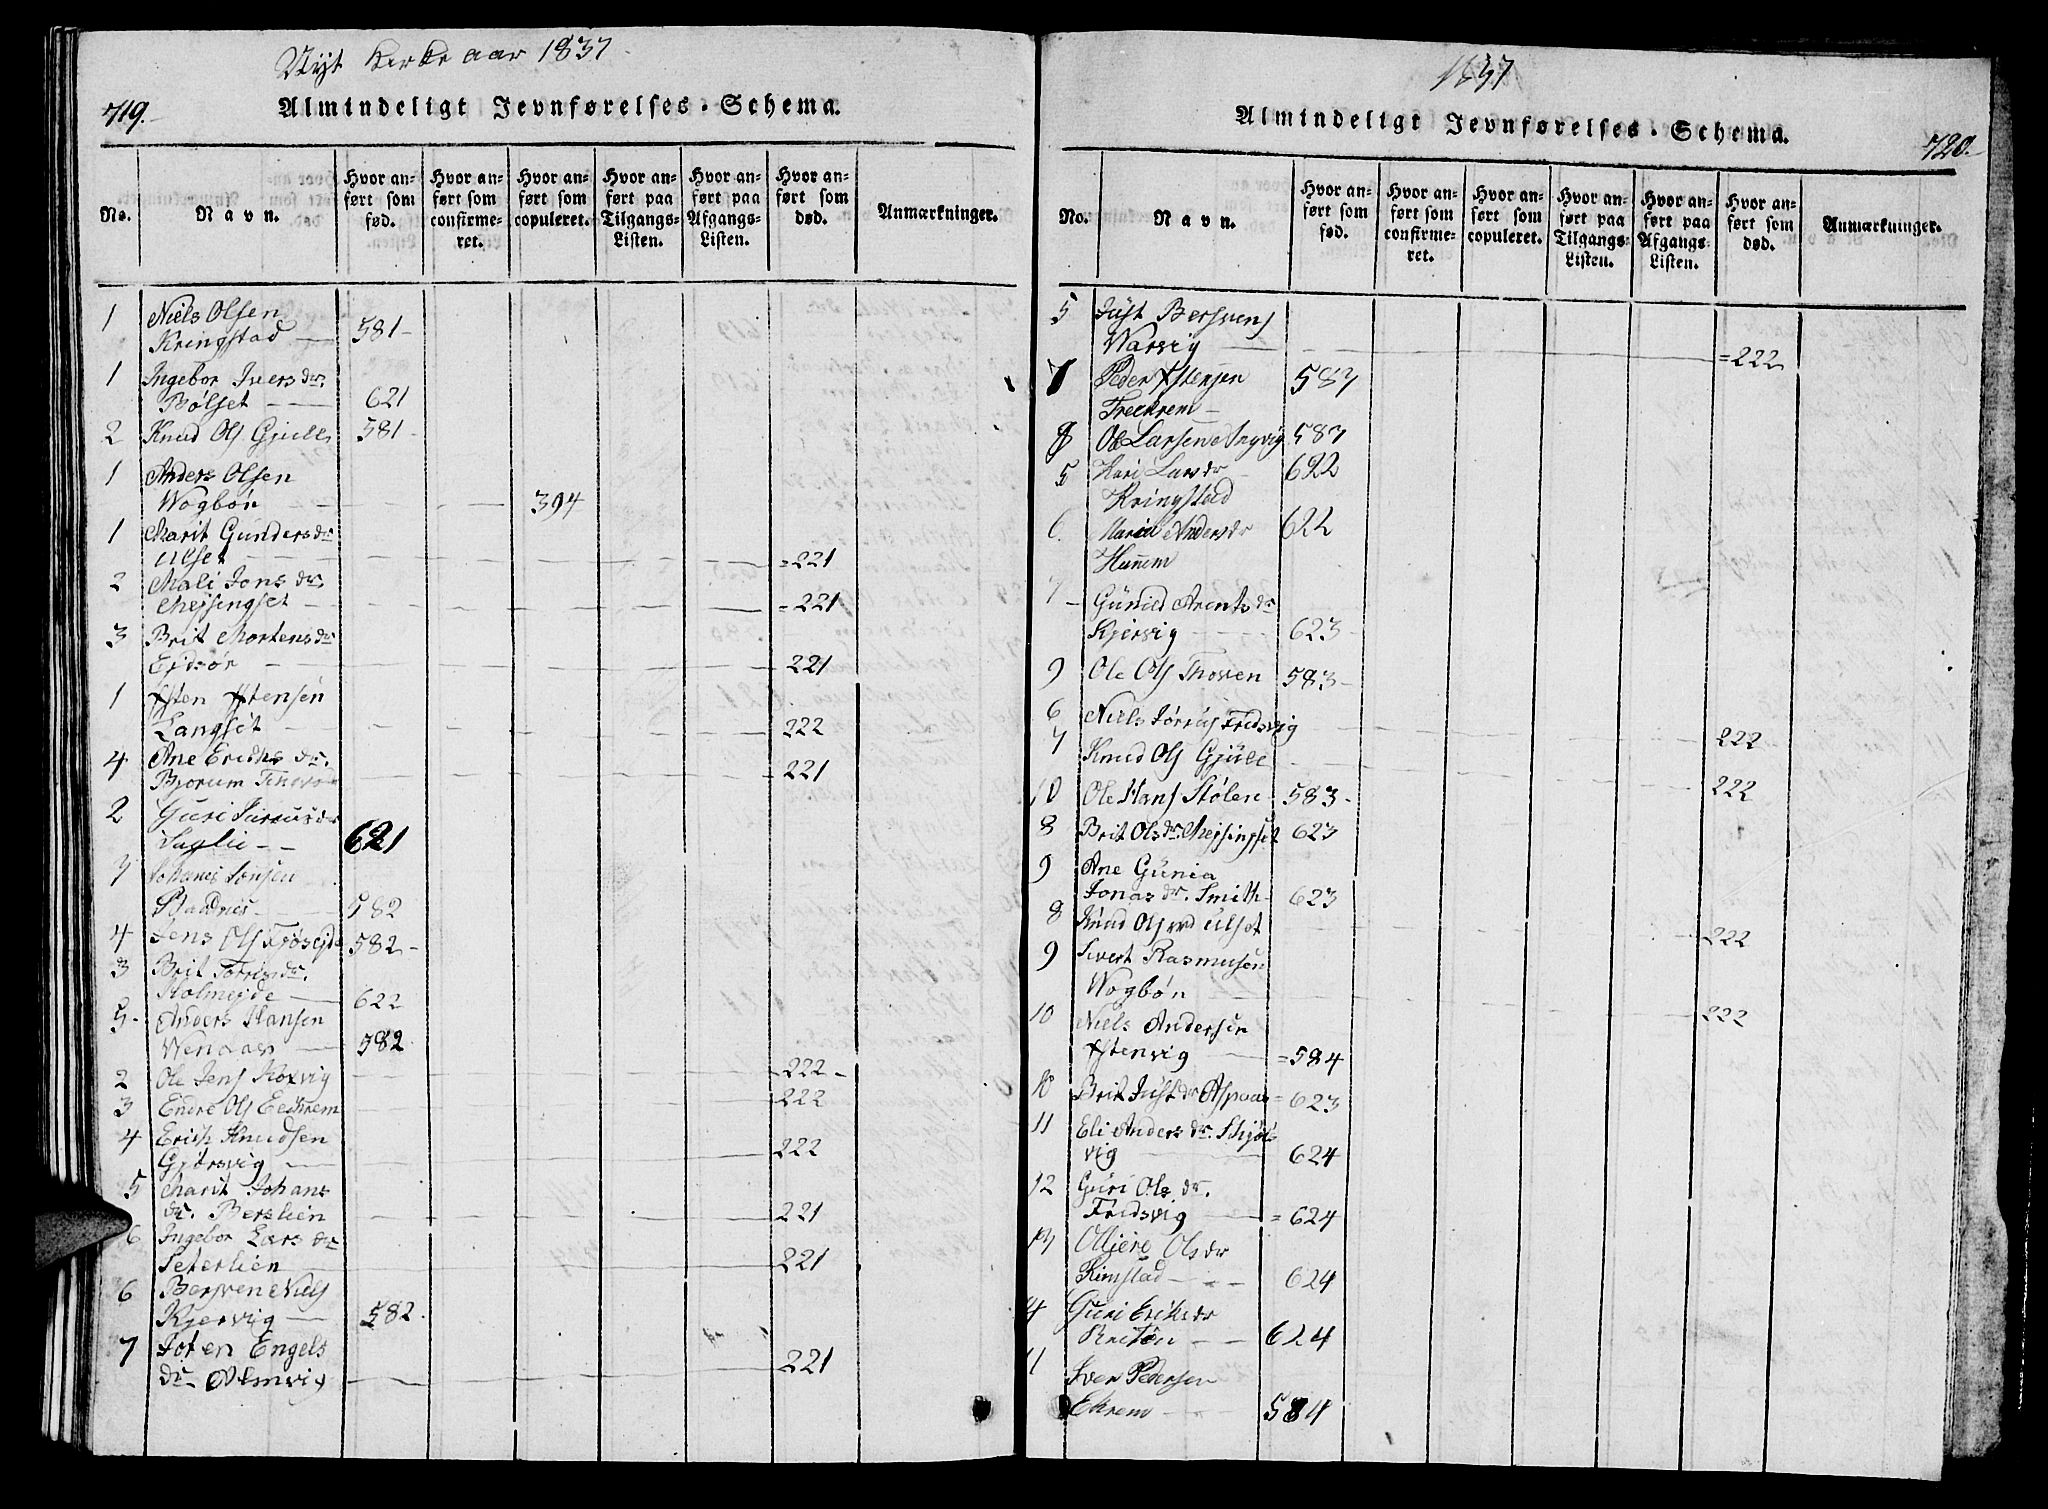 Nyt Kirke aar 1837
719.
Almindeligt Jevnførelses-Schema.
No.
Navn.
Hvor anført som fød.
Hvor anført som confirmeret.
Hvor anført som copuleret.
Hvor anført paa Tilgangs-Listen.
Hvor anført paa Afgangs-Listen.
Hvor anført som død.
Anmærkninger.
1 Niels Olsen
Kringstad — 581 —
1 Ingebor Ivers dr.
Bølset — 621
2 Knud Ols Gjule 581 -
1 Anders Olsen
Wogbøn 394
1 Marit Gunders dr
Ulset = 221
2 Mali Jons dr.
Mejsingset - 221
3 Brit Mortens dr
Ejdsør 221
1 Ysten Ystensen
Langset 222
4 Ane Erichs dr.
Bjorum 221
2 Guri dr
621
Johanes Jensen
582
4 Jens Ols 582 -
3 Brit dr.
Stolmejde — 622
5 Anders Hansen
582
2 Ole Jens 222 -
3 Endre Ols Eechrem 222
4 Erich Knudsen
Gjørsvig 222
5 Marit Johans
dr. Berslien 221
6 Ingebor Lars dr
Seterlien 221
6 Bersven Niels
Kjervig — 582
7 Engels
dr 221
1837
Almindeligt Jevnførelses-Schema.
720.
No.
Navn.
Hvor anført som fød.
Hvor anført som confirmeret.
Hvor anført som copuleret.
Hvor anført paa Tilgangs-Listen.
Hvor anført paa Afgangs-Listen.
Hvor anført som død.
Anmærkninger.
5 Just Bersvens
Warvig = 222
7 Peder Ystensen 583
Treekrem —
8 Ole Larsen Angvig 583
5 Kari Lars dr 622
Kringstad
6 Maria Anders dr 622
Hunem
7 - Gunild Arents dr
Kjervig 623
9 Ole Ols Thoven 583 -
6 Niels Fredsvig 222
7 Knud Ols Gjule 222
10 Ole Hans Stølen 583 -
8 Brit Ols dr. Mejsingset 623
9 Ane Gunia
Jonas dr. Smith 623
8 Knud Ols Ulset 222
9 Sivert Rasmusen
Wogbøn 222
10 Niels Andersen
Ystenvig = 584
10 Brit Just dr Aspaas = 623
11 Eli Anders dr. Skjøls
vig 624
12 Guri Ols dr.
Fredsvig = 624
13 Ols dr
Rimstad 624
14 Guri Eriks dr
624
11 Iver Pedersen
Ekrem 584